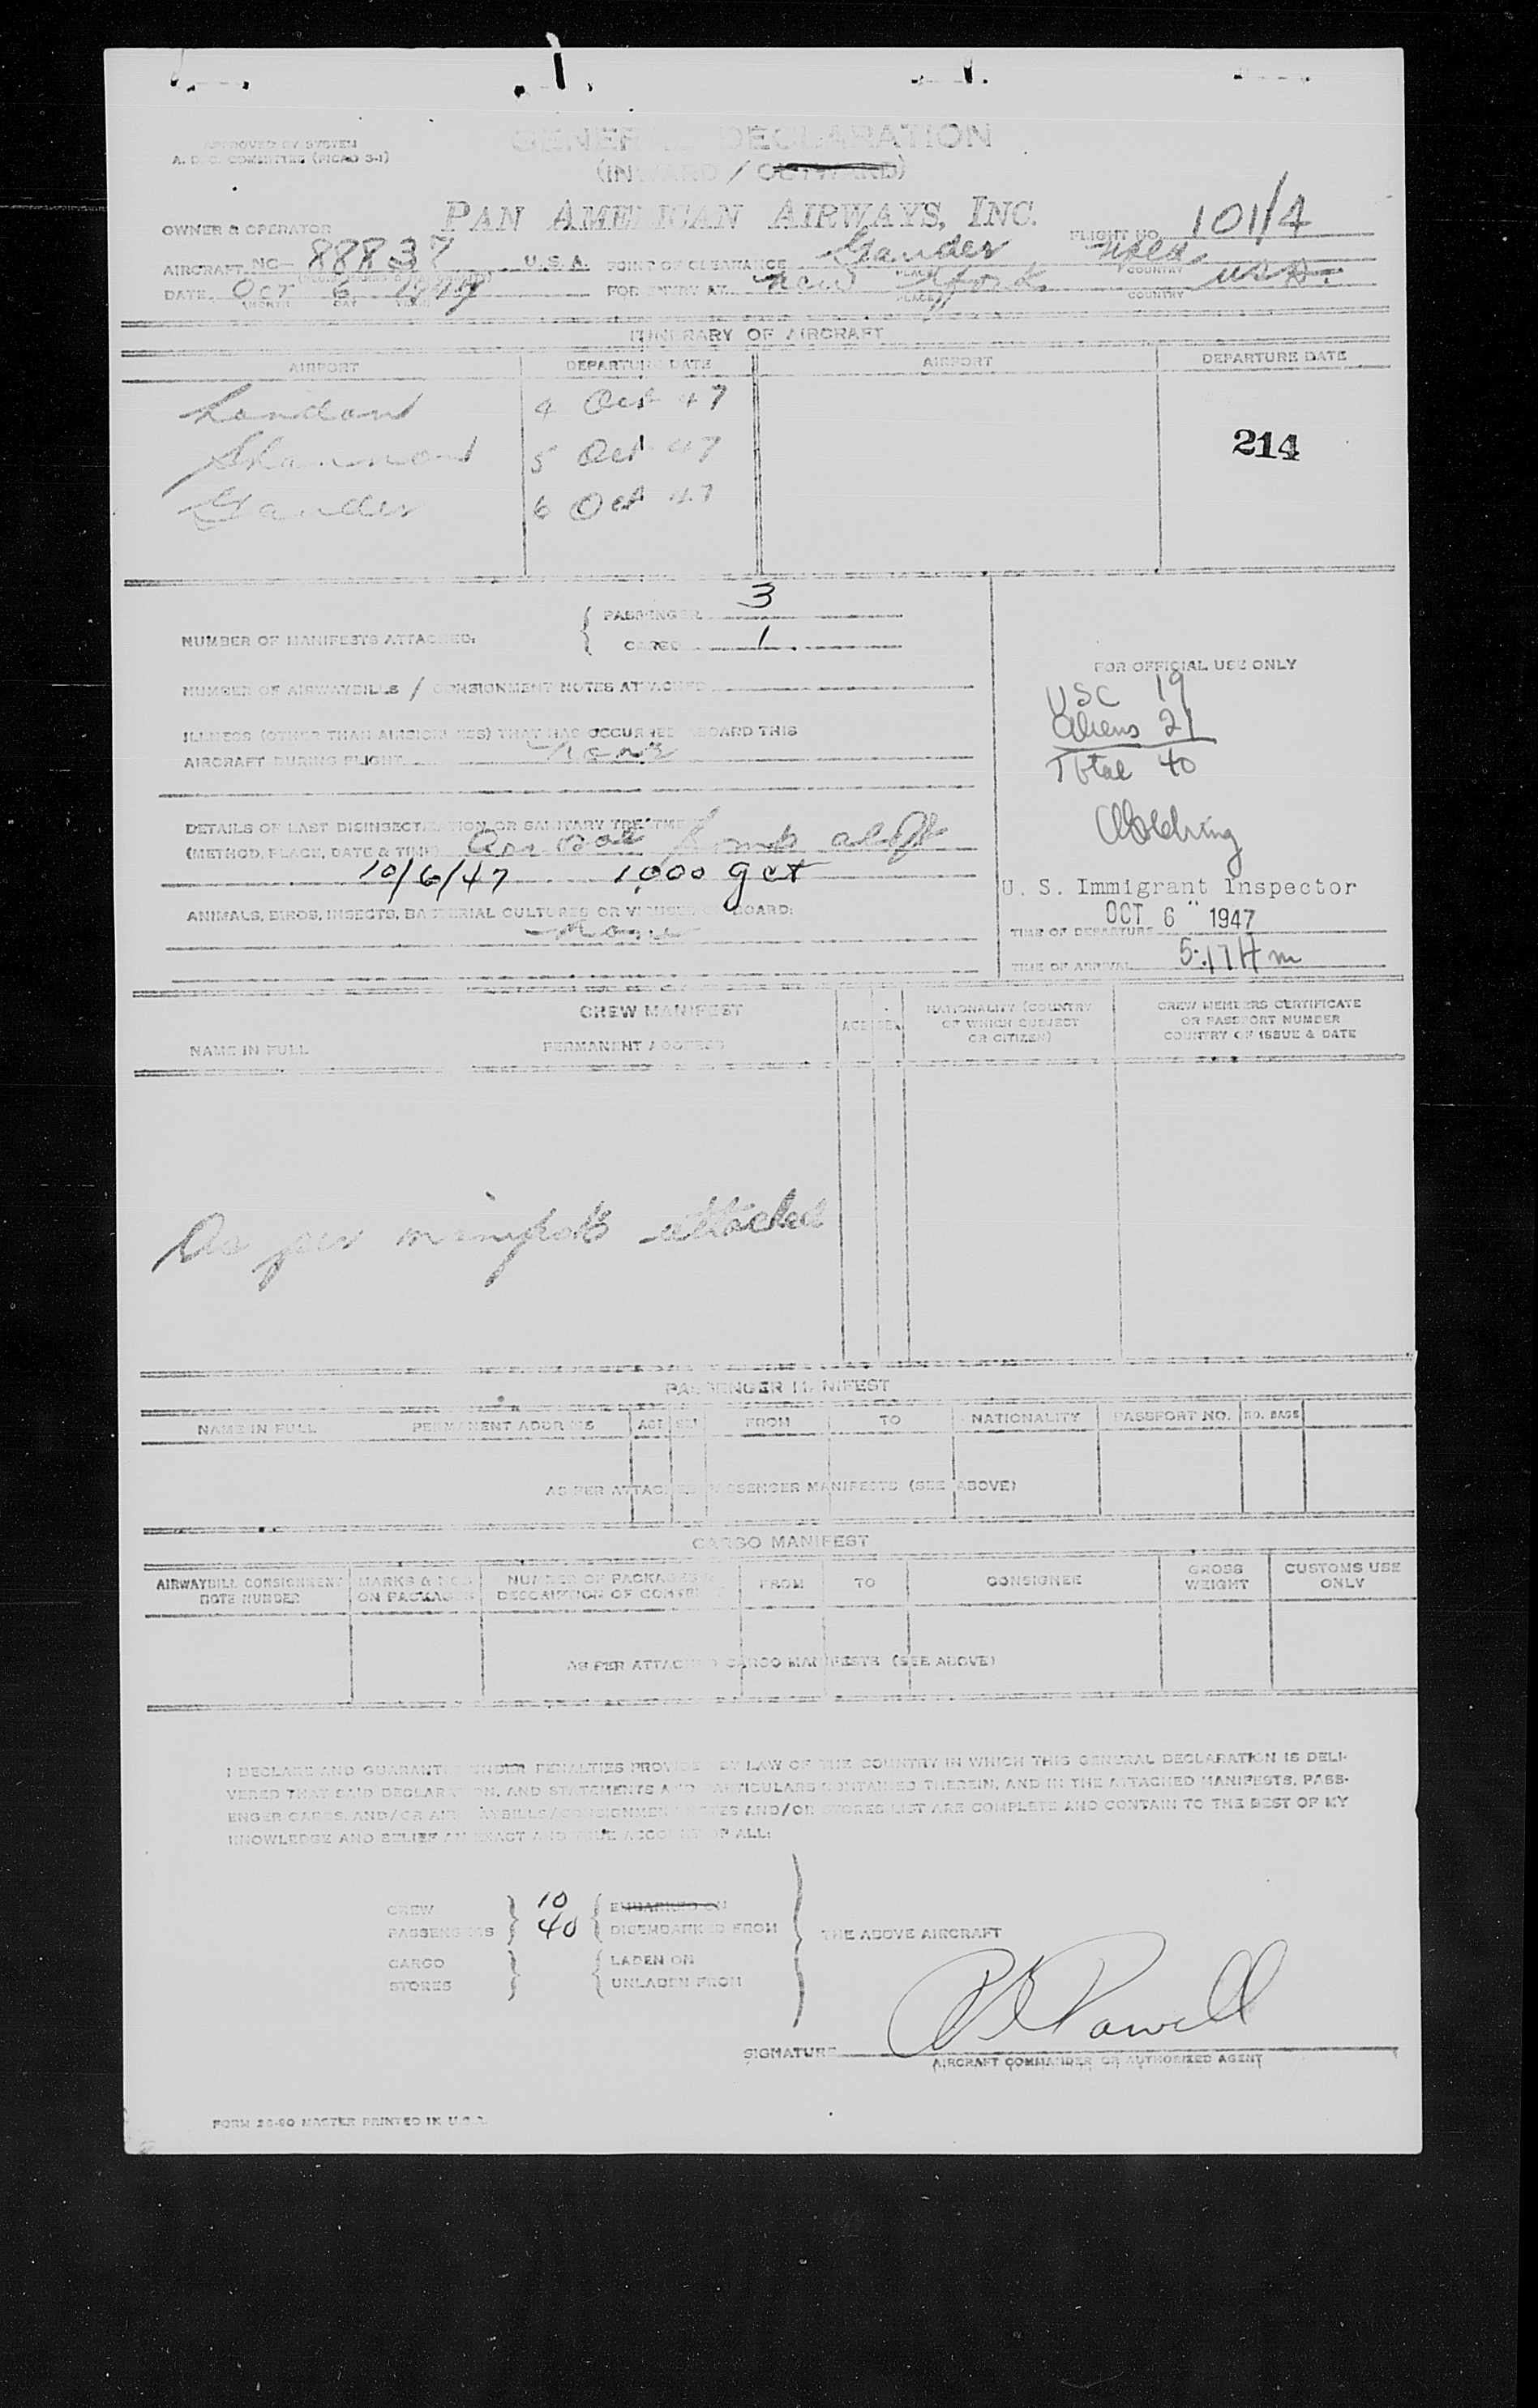 APPROVED BY SYSTEM
A. D. C. COMMITTEE (PICAO 3-1)
GENERAL DECLARATION
(INWARD / OUTWARD)
PAN AMERICAN AIRWAYS, INC.
OWNER & OPERATOR
FLIGHT NO. 101/4
AIRCRAFT NC- 88837 U.S.A. POINT OF CLEARANCE Gander Nfld
PLACE COUNTRY
DATE Oct 6 1947 FOR ENTRY AT New York USA
MONTH DAY YEAR PLACE COUNTRY
ITINERARY OF AIRCRAFT
AIRPORT DEPARTURE DATE AIRPORT DEPARTURE DATE
London 4 Oct 47
Shannon 5 Oct 47
214
Gander 6 Oct 47
NUMBER OF MANIFESTS ATTACHED: { PASSENGER 3
CARGO 1
FOR OFFICIAL USE ONLY
NUMBER OF AIRWAYBILLS / CONSIGNMENT NOTES ATTACHED
USC 19
Aliens 21
Total 40
ILLNESS (OTHER THAN AIRSICKNESS) THAT HAS OCCURRED ABOARD THIS
AIRCRAFT DURING FLIGHT None
DETAILS OF LAST DISINSECTIZATION OR SANITARY TREATMENT
(METHOD, PLACE, DATE & TIME) Aerosol Bomb aloft
10/6/47 1000 gct
U. S. Immigrant Inspector
ANIMALS, BIRDS, INSECTS, BACTERIAL CULTURES OR VIRUSES ON BOARD:
None
OCT 6 1947
TIME OF DEPARTURE
TIME OF ARRIVAL 5:17 A m
CREW MANIFEST
NAME IN FULL PERMANENT ADDRESS AGE SEX NATIONALITY (COUNTRY OF WHICH SUBJECT OR CITIZEN) CREW MEMBERS CERTIFICATE OR PASSPORT NUMBER COUNTRY OF ISSUE & DATE
As per attached
PASSENGER MANIFEST
NAME IN FULL PERMANENT ADDRESS AGE SEX FROM TO NATIONALITY PASSPORT NO. NO. BAGS
AS PER ATTACHED PASSENGER MANIFESTS (SEE ABOVE)
CARGO MANIFEST
AIRWAYBILL CONSIGNMENT NOTE NUMBER MARKS & NOS. ON PACKAGES NUMBER OF PACKAGES & DESCRIPTION OF CONTENTS FROM TO CONSIGNEE GROSS WEIGHT CUSTOMS USE ONLY
AS PER ATTACHED CARGO MANIFESTS (SEE ABOVE)
I DECLARE AND GUARANTEE UNDER PENALTIES PROVIDED BY LAW OF THE COUNTRY IN WHICH THIS GENERAL DECLARATION IS DELI-
VERED THAT SAID DECLARATION, AND STATEMENTS AND PARTICULARS CONTAINED THEREIN, AND IN THE ATTACHED MANIFESTS, PASS-
ENGER CARDS, AND/OR AIRWAYBILLS/CONSIGNMENT NOTES AND/OR STORES LIST ARE COMPLETE AND CONTAIN TO THE BEST OF MY
KNOWLEDGE AND BELIEF AN EXACT AND TRUE ACCOUNT OF ALL:
CREW } 10 { EMBARKED ON
PASSENGERS } 40 { DISEMBARKED FROM
THE ABOVE AIRCRAFT
CARGO } { LADEN ON
STORES } { UNLADEN FROM
SIGNATURE Powell
AIRCRAFT COMMANDER OR AUTHORIZED AGENT
FORM 26-90 MASTER PRINTED IN U.S.A.